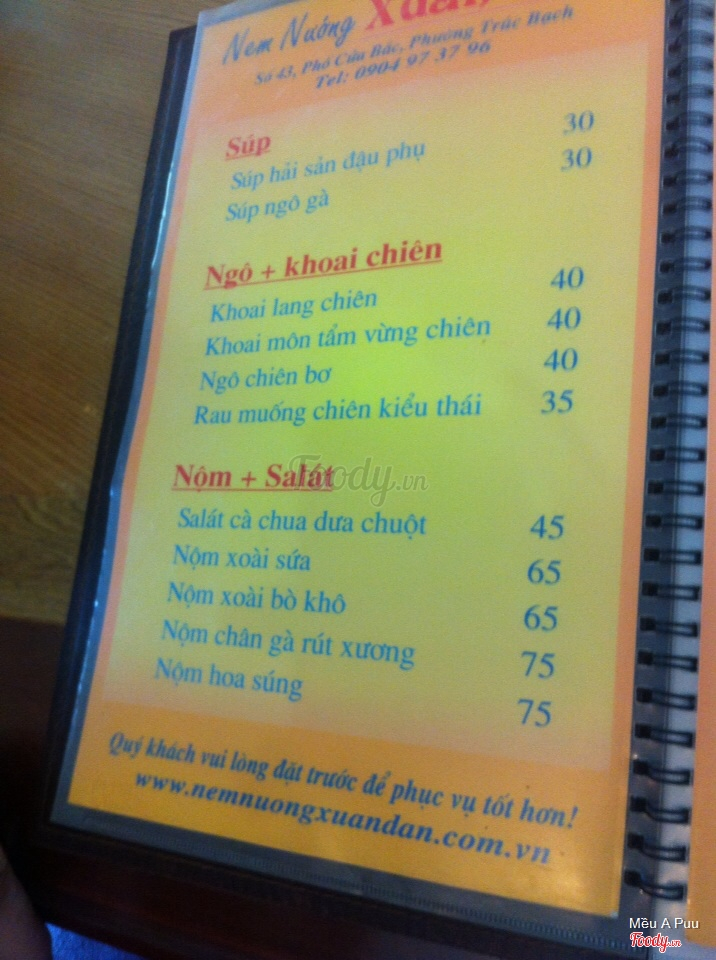 Nem Nướng Xuân
Số 43, Phố Cửa Bắc, Phường Trúc Bạch
Tel: 0904 97 37 96
Súp
Súp hải sản đậu phụ 30
Súp ngô gà 30
Ngô + khoai chiên
Khoai lang chiên 40
Khoai môn tẩm vừng chiên 40
Ngô chiên bơ 40
Rau muống chiên kiểu thái 35
Nộm + Salát
Salát cà chua dưa chuột 45
Nộm xoài sứa 65
Nộm xoài bò khô 65
Nộm chân gà rút xương 75
Nộm hoa súng 75
Quý khách vui lòng đặt trước để phục vụ tốt hơn!
www.nemnuongxuandan.com.vn
Foody.vn
Mều A Puu
Foody.vn